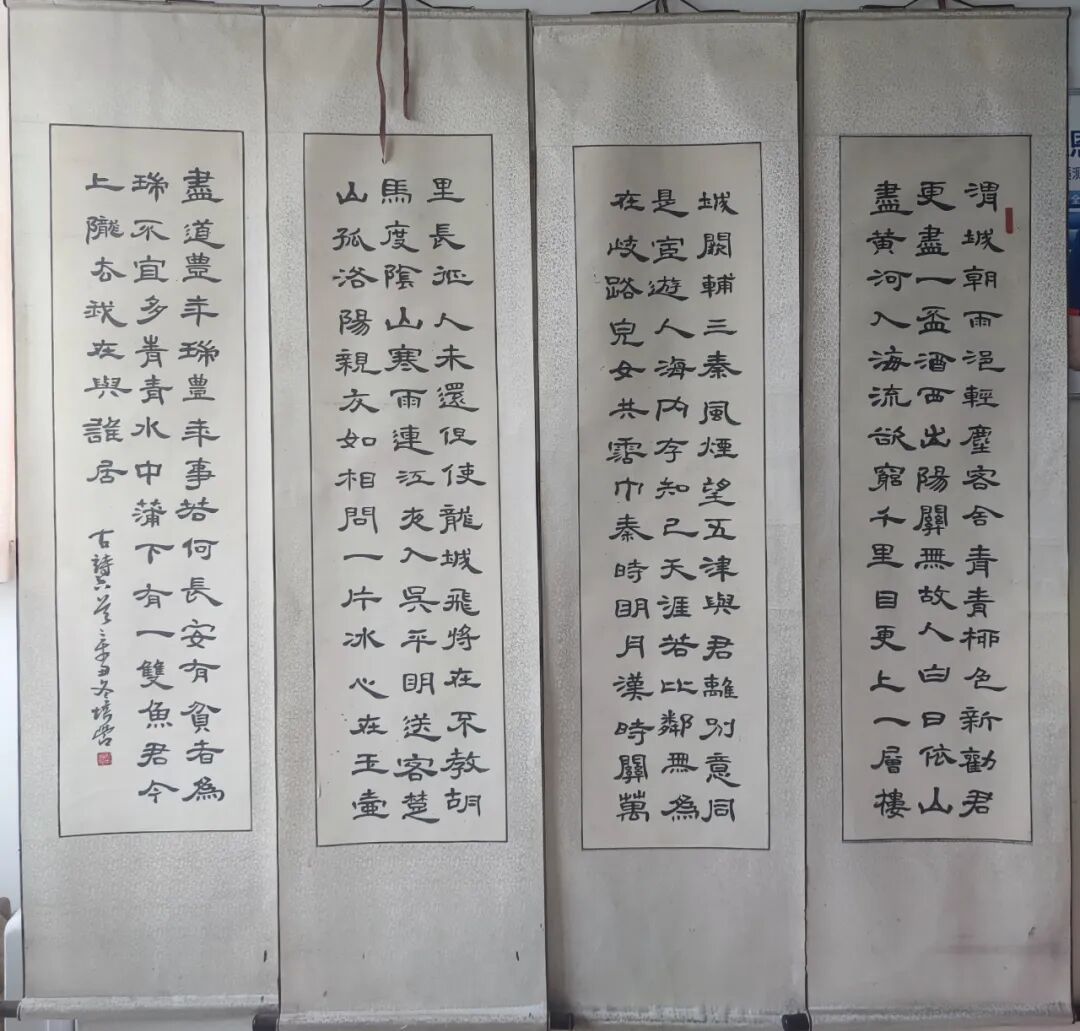 渭城朝雨浥輕塵客舍青青柳色新勸君
更盡一盃酒西出陽關無故人白日依山
盡黃河入海流欲窮千里目更上一層樓
城闕輔三秦風煙望五津與君離別意同
是宦遊人海內存知己天涯若比鄰無為
在歧路兒女共霑巾秦時明月漢時關萬
里長征人未還但使龍城飛將在不教胡
馬度陰山寒雨連江夜入吳平明送客楚
山孤洛陽親友如相問一片冰心在玉壺
盡道豐年瑞豐年事若何長安有貧者為
瑞不宜多青青水中蒲下有一雙魚君今
上隴去我在與誰居
古詩六首辛丑冬培